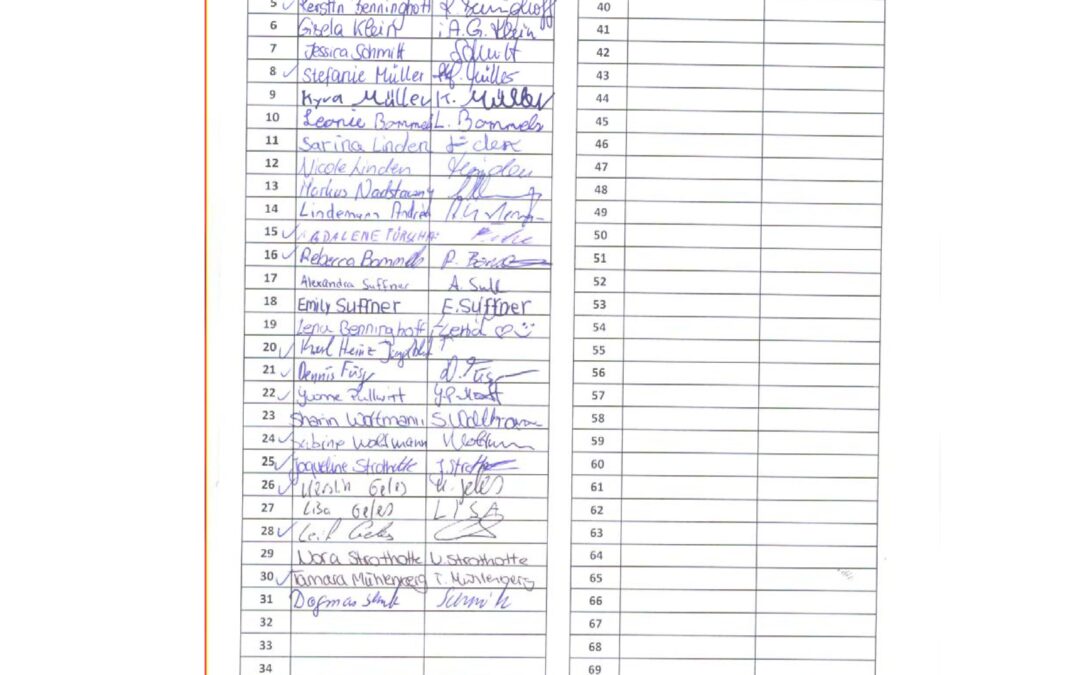 5 Kerstin Benninghoff K. Benninghoff
6 Gisela Klein i.A.G. Klein
7 Jessica Schmitt Schmitt
8 Stefanie Müller
9 Kyra Müller K. Müller
10 Leonie Bommels L. Bommels
11 Sarina Linden
12 Nicole Linden
13 Markus
14 Lindemann André
15
16 Rebecca Bommels
17 Alexandra Suffner A. Suff
18 Emily Suffner E. Suffner
19 Lena Benninghoff Lena
20 Karl Heinz
21 Dennis Füsg D. Füsg
22 Yvonne
23 Sharin Woltmann S. Woltmann
24 Sabine Woltmann
25 Jaqueline Strothotte J. Stroth
26 Kerstin Geles K. Geles
27 Lisa Geles LISA
28 Leif Geles
29 Nora Strothotte N. Strothotte
30 Tamara Mühlenberg T. Mühlenberg
31 Dagmar
32
33
34
40
41
42
43
44
45
46
47
48
49
50
51
52
53
54
55
56
57
58
59
60
61
62
63
64
65
66
67
68
69